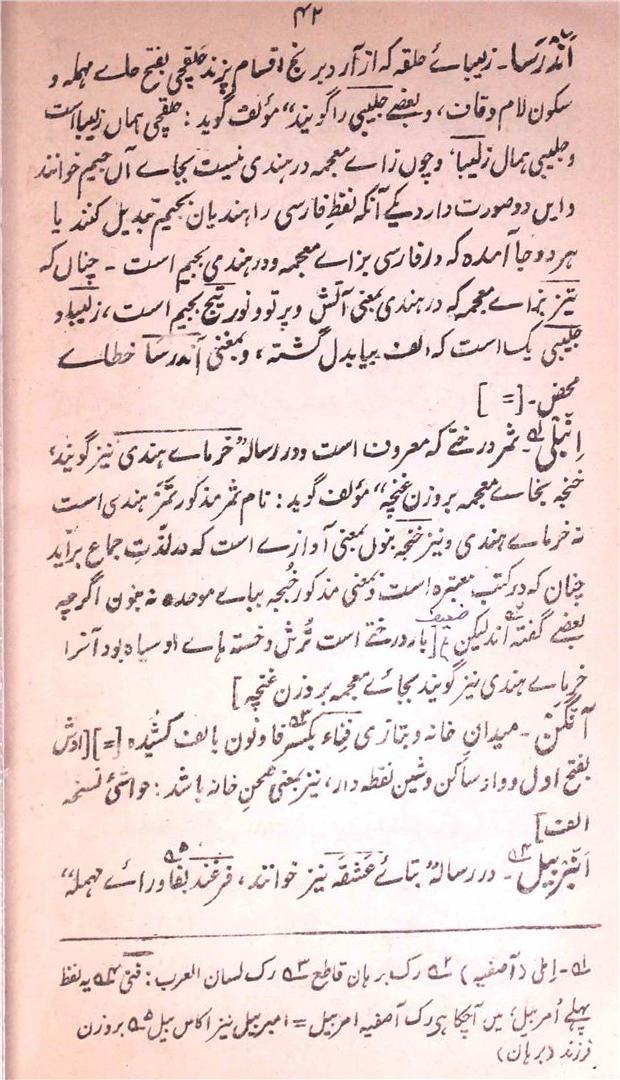 ۴۲
اَندرَسا۔ زلیبائے حلقہ کہ از آرد برنج اقسام پزند حلقچی بفتح حائے مہملہ و
سکون لام و قاف، و بعضے جلیبی را گویند“ مؤلف گوید: حلقچی ہماں زلیبا است
و جلیبی ہماں زلیبا، و چوں زائے معجمہ در ہندی نیست بجائے آں جیم خوانند
و ایں دو صورت دارد یکے آنکہ نقطِ فارسی را ہندیان بجیم تبدیل کنند یا
ہر دو جا آمدہ کہ در فارسی بزائے معجمہ و در ہندی بجیم است ۔ چناں کہ
تیز بزائے معجمہ کہ در ہندی بمعنی آتش و پرتو و نور تیج بجیم است، زلیبا و
جلیبی یک است کہ الف بیا بدل گشتہ، و بمعنی اندرسا خطائے
محض۔ [= ]
اِنبلی۱؎۔ ثمر درختے کہ معروف است و در رسالہ ”خرمائے ہندی نیز گویند،
خنجہ بخائے معجمہ بروزن غنچہ“ مؤلف گوید: نام ثمر مذکور تمر ہندی است
نہ خرمائے ہندی و نیز خنجہ بنون بمعنی آوازے است کہ در لذّتِ جماع برآید
چناں کہ در کتب معتبرہ است و بمعنی مذکور خبجہ ببائے موحدہ نہ بنون اگرچہ
بعضے گفتہ۲؎ اند لیکن ضعیف [بار درختے است تُرش و خستہ ہائے او سیاہ بود آنرا
خرمائے ہندی نیز گویند بخائے معجمہ بروزن غنچہ]
آنگن ۔ میدانِ خانہ و بتازی فِناء۳؎ بکسرِ فا و نون با الف کشیدہ [=] [اوش
بفتح اول و واو ساکن و شین نقطہ دار، نیز بمعنی صحن خانہ باشد: حواشیٔ نسخہ
الف]
اَنبر بیل۴؎۔ در رسالہ ”بتائے عَشَقَہ نیز خوانند، فرغند۵؎ بفا و رائے مہملہ“
۱؎۔ اِملی (آصفیہ) ۲؎ رک برہان قاطع ۳؎ رک لسان العرب: فنی ۴؎ یہ لفظ
پہلے اُمربیل، میں آچکا ہی رک آصفیہ امربیل = امبربیل نیز اکاس بیل ۵؎ بروزن
فرزند (برہان)